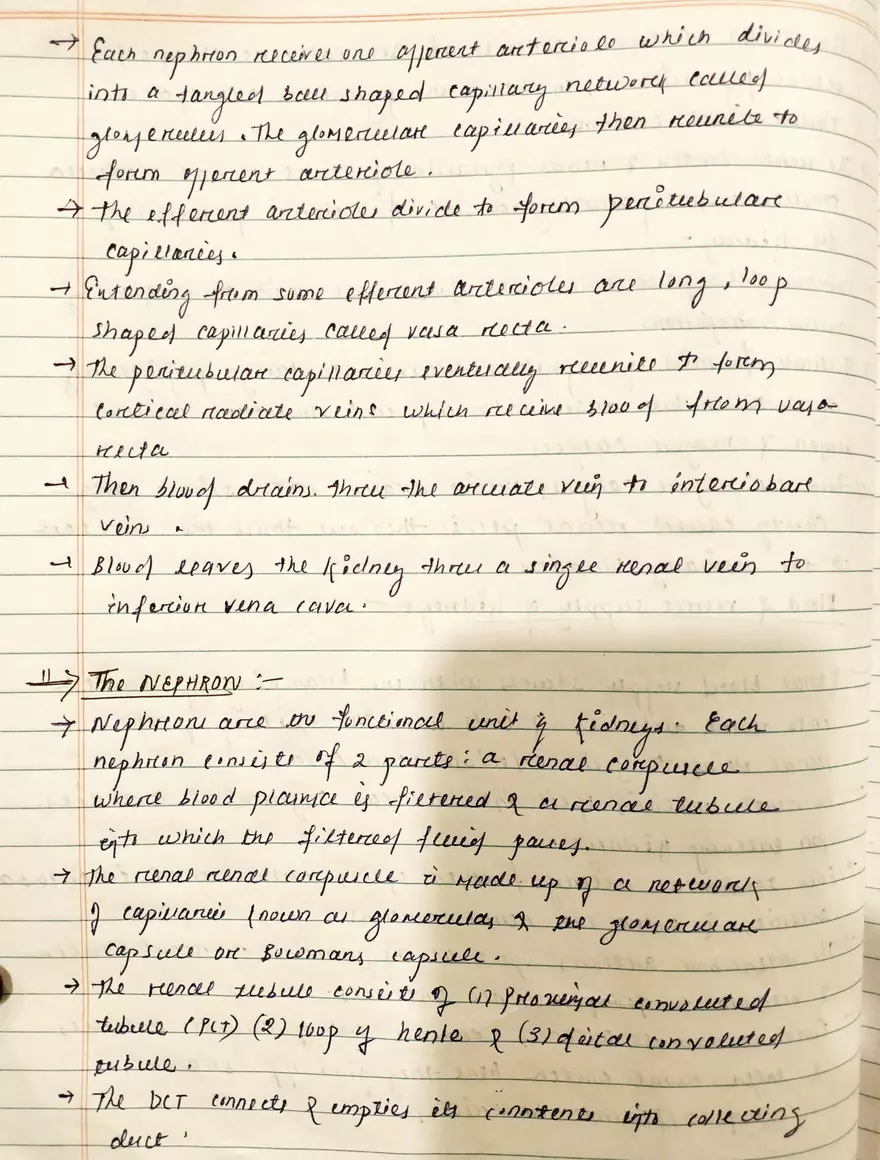 → Each nephron receives one afferent arteriole which divides
into a tangled ball shaped capillary network called
glomerulus. The glomerular capillaries then reunite to
form efferent arteriole.
→ The efferent arterioles divide to form peritubular
capillaries.
→ Extending from some efferent arterioles are long, loop
shaped capillaries called vasa recta.
→ The peritubular capillaries eventually reunite to form
cortical radiate veins which receive blood from vasa
recta
→ Then blood drains thru the arcuate vein to interlobar
veins.
→ Blood leaves the kidney thru a single renal vein to
inferior vena cava.
11⇒ The NEPHRON :-
→ Nephrons are the functional unit of kidneys. Each
nephron consists of 2 parts: a renal corpuscle
where blood plasma is filtered & a renal tubule
into which the filtered fluid passes.
→ The renal renal corpuscle is made up of a network
of capillaries known as glomerulas & the glomerular
capsule or Bowmans capsule.
→ The renal tubule consists of (1) proximal convoluted
tubule (PCT) (2) loop of henle & (3) distal convoluted
tubule.
→ The DCT connects & empties its conntents into collecting
duct.